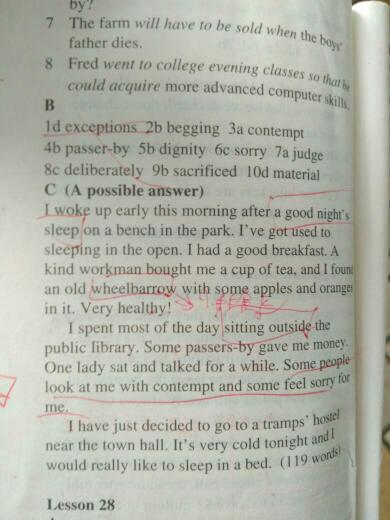 by?
7 The farm will have to be sold when the boys'
father dies.
8 Fred went to college evening classes so that he
could acquire more advanced computer skills.
B
1d exceptions 2b begging 3a contempt
4b passer-by 5b dignity 6c sorry 7a judge
8c deliberately 9b sacrificed 10d material
C (A possible answer)
I woke up early this morning after a good night's
sleep on a bench in the park. I've got used to
sleeping in the open. I had a good breakfast. A
kind workman bought me a cup of tea, and I found
an old wheelbarrow with some apples and oranges
in it. Very healthy!
I spent most of the day sitting outside the
public library. Some passers-by gave me money.
One lady sat and talked for a while. Some people
look at me with contempt and some feel sorry for
me.
I have just decided to go to a tramps' hostel
near the town hall. It's very cold tonight and I
would really like to sleep in a bed. (119 words)
Lesson 28